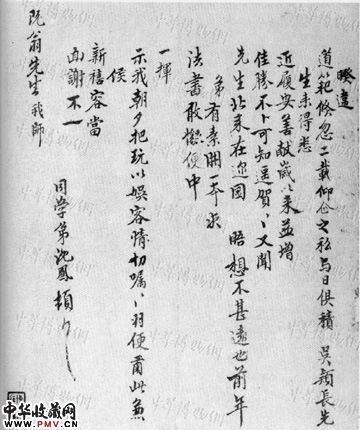 暌違
道範倏忽二載仰企之私与日俱積 吳穎長先
生来得悉
近履安善献歲以来益增
佳勝不卜可知遥賀、、又聞
先生北来在迩因 晤想不甚遠也前年
弟有素冊一本求
法書敢懇便中
一揮
示我朝夕把玩以娱容情切嘱、、羽便肅此兼
候
新禧容當
面謝不一
阮翁先生我師
同学弟沈鳳頓
中华收藏网
WWW.PMV.CN